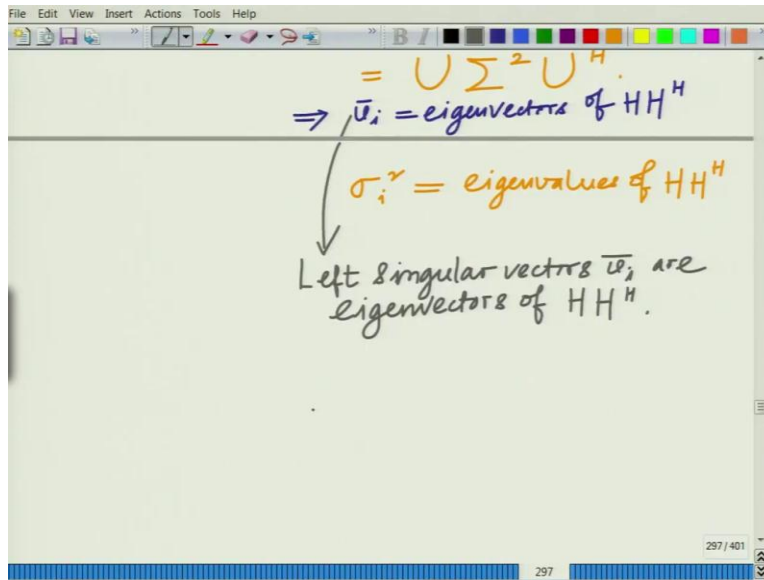 File Edit View Insert Actions Tools Help
B I
= U Σ² Uᴴ.
⇒ ū_i = eigenvectors of HHᴴ
σ_i² = eigenvalues of HHᴴ
Left singular vectors ū_i are
eigenvectors of HHᴴ.
297/401
297